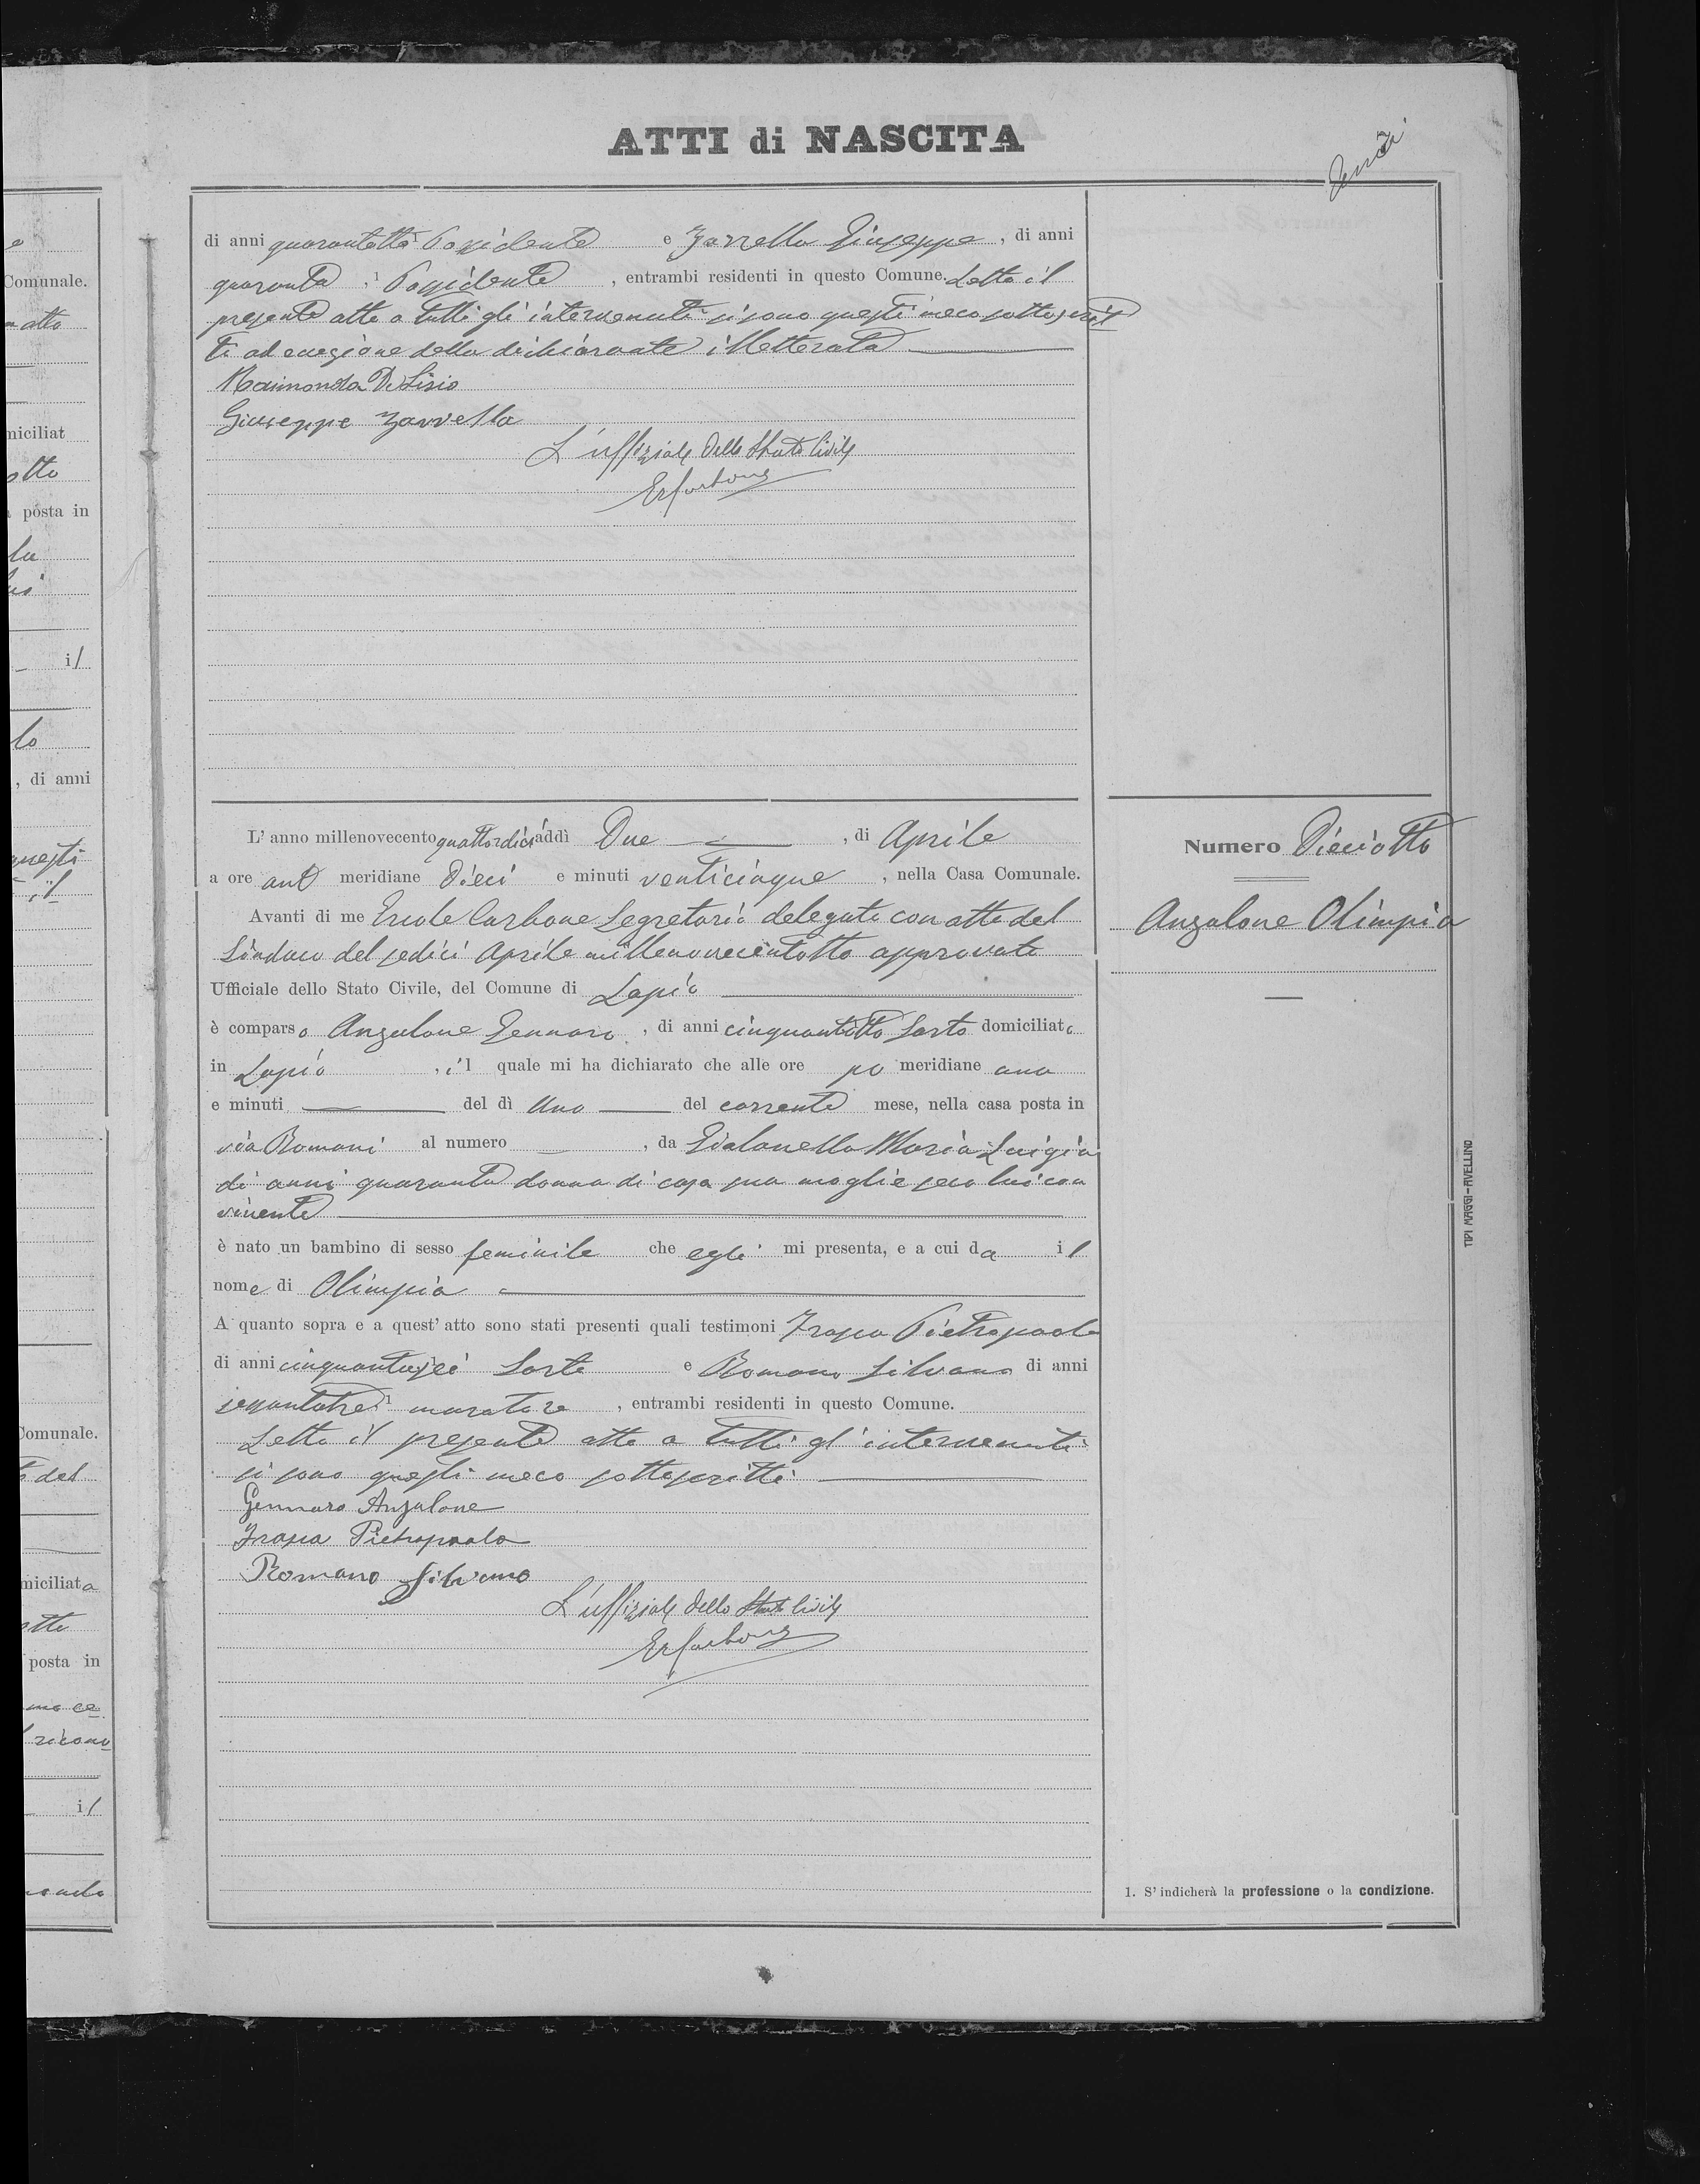 ATTI di NASCITA
di anni quarantotto Possidente e Zarrella Giuseppe, di anni
quaranta, Possidente, entrambi residenti in questo Comune. Letto il
presente atto a tutti gli intervenuti si sono questi meco sottoscrit
ti ad eccezione della dichiarante illetterata
Raimondo De Lisio
Giuseppe Zarrella
L'uffiziale dello Stato Civile
ErCarbone
L'anno millenovecento quattordici addì Due, di Aprile
a ore ant meridiane Dieci e minuti venticinque, nella Casa Comunale.
Avanti di me Ercole Carbone Segretario delegato con atto del
Sindaco del sedici Aprile millenovecentotto approvato
Ufficiale dello Stato Civile, del Comune di Lapio
è comparso Anzalone Gennaro, di anni cinquantotto Sarto domiciliato
in Lapio, il quale mi ha dichiarato che alle ore po meridiane una
e minuti del dì Uno del corrente mese, nella casa posta in
via Romani al numero, da Maria Luigia
di anni quaranta donna di casa sua moglie seco lui con
vivente
è nato un bambino di sesso feminile che egli mi presenta, e a cui da il
nome di Olimpia
A quanto sopra e a quest'atto sono stati presenti quali testimoni Pietropaolo
di anni cinquantasei Sarto e Romano Silvano di anni
muratore, entrambi residenti in questo Comune.
Letto il presente atto a tutti gl'intervenuti
si sono questi meco sottoscritti
Gennaro Anzalone
Pietropaolo
Romano Silvano
L'uffiziale dello Stato Civile
ErCarbone
Numero Dieciotto
Anzalone Olimpia
TIPI MAGGI-AVELLINO
1. S'indicherà la professione o la condizione.
Comunale.
posta in
il
, di anni
il
Comunale.
posta in
il